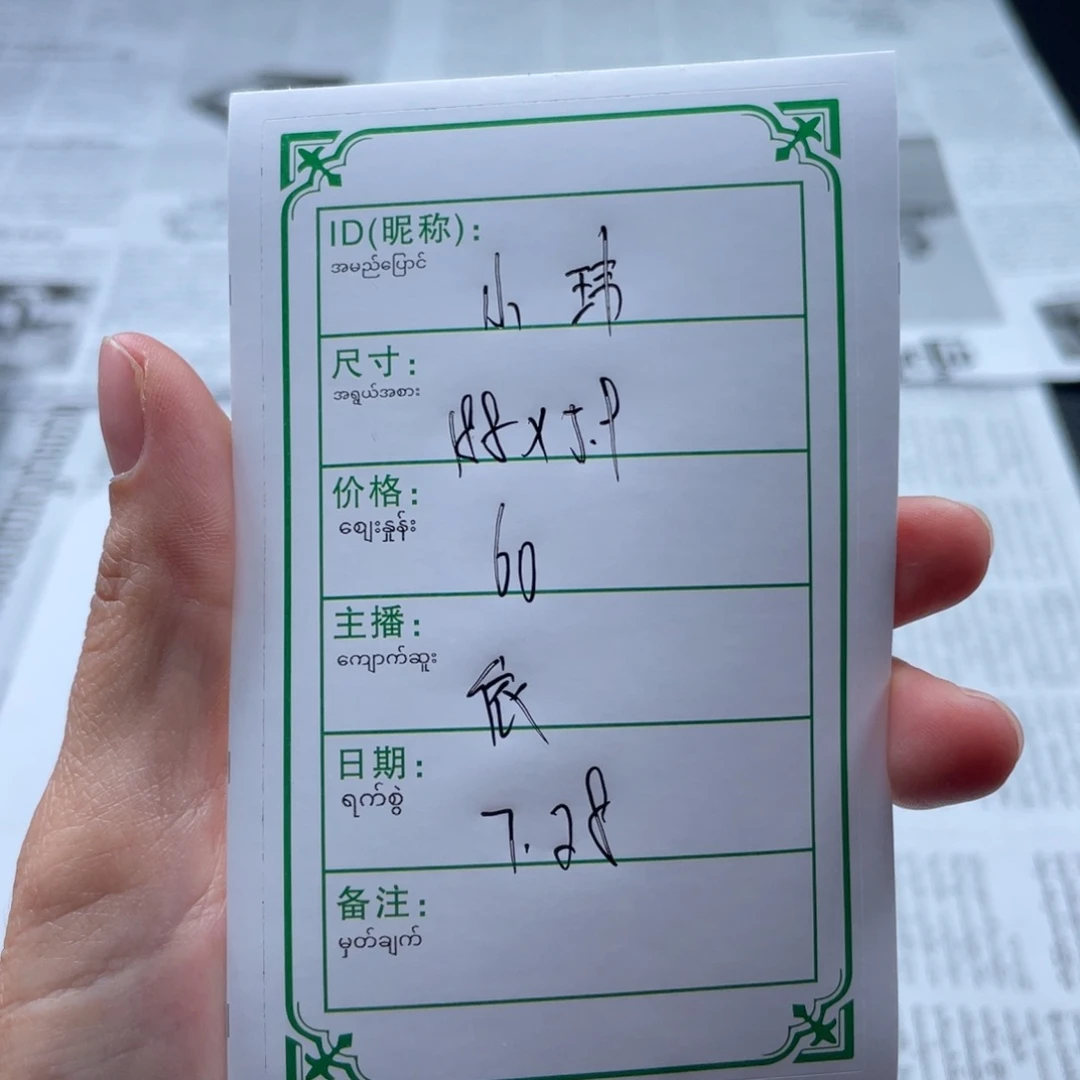 ID(昵称): 小 玮
အမည်ပြောင်
尺寸:
အရွယ်အစား
价格: 60
ဈေးနှုန်း
主播:
ကျောက်ဆူး
日期: 7.28
ရက်စွဲ
备注:
မှတ်ချက်